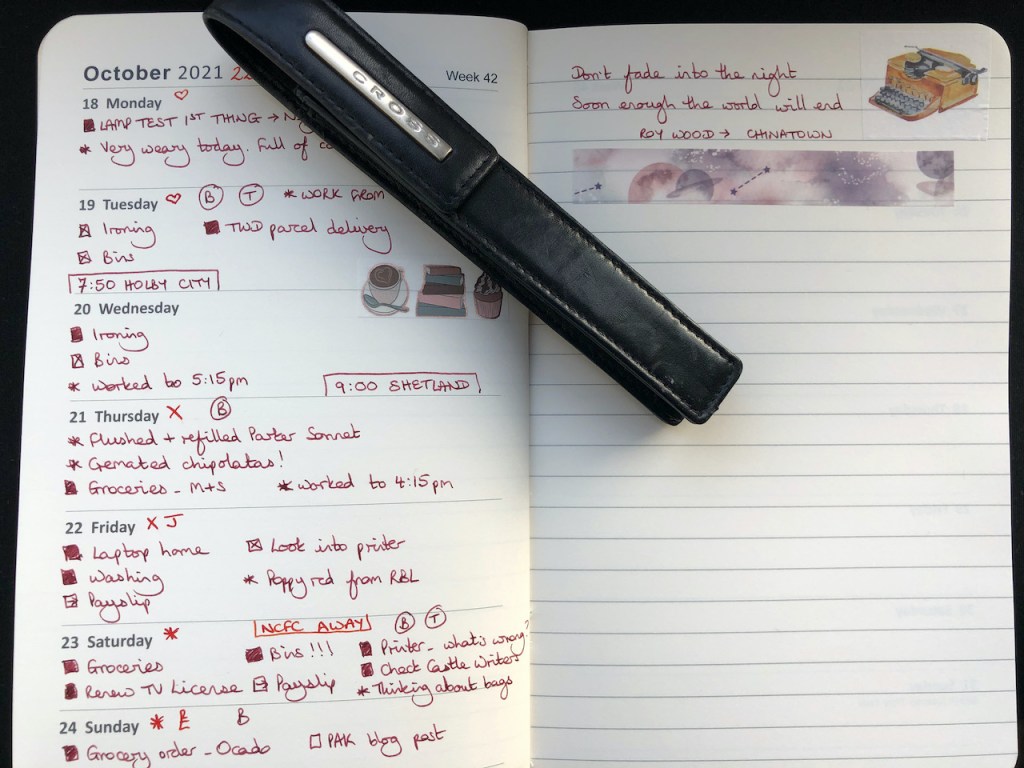 October 2021 22
Week 42
18 Monday ♡
■ LAMP TEST 1ST THING →
* Very weary today. Full of
19 Tuesday ♡ Ⓑ Ⓣ * WORK FROM
☒ Ironing ■ TWD parcel delivery
☒ Bins
7:50 HOLBY CITY
20 Wednesday
■ Ironing
☒ Bins
* worked to 5:15pm 9:00 SHETLAND
21 Thursday X Ⓑ
* Flushed + refilled Parker Sonnet
* Cremated chipolatas!
■ Groceries - M+S * worked to 4:15pm
22 Friday X J
■ Laptop home ☒ Look into printer
■ Washing * Poppy red from RBL
Payslip
23 Saturday * NCFC AWAY Ⓑ Ⓣ
■ Groceries ■ Bins!!! ■ Printer - what's wrong?
■ Check Castle Writers
■ Renew TV License Payslip * Thinking about bags
24 Sunday * E B
■ Grocery order - Ocado □ PAK blog post
CROSS
Don't fade into the night
Soon enough the world will end
ROY WOOD → CHINATOWN